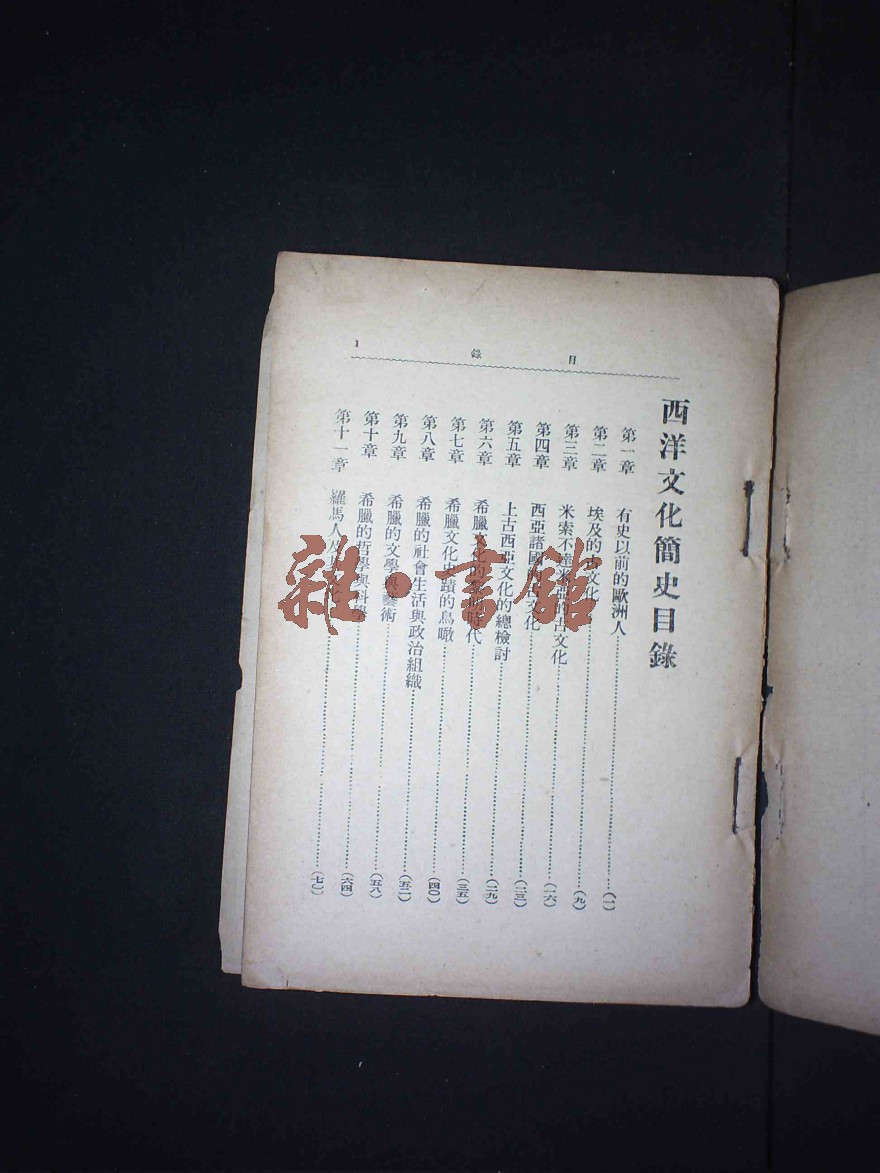 目錄 1
西洋文化簡史目錄
第一章 有史以前的歐洲人……(一)
第二章 埃及的古文化……(九)
第三章 米索不達米亞的古文化……(一六)
第四章 西亞諸國的古文化……(二三)
第五章 上古西亞文化的總檢討……(二九)
第六章 希臘文化的 時代……(三五)
第七章 希臘文化 蹟的鳥瞰……(四〇)
第八章 希臘的社會生活與政治組織……(五二)
第九章 希臘的文學與藝術……(五八)
第十章 希臘的哲學與科學……(六四)
第十一章 羅馬人……(七〇)
雜·書館